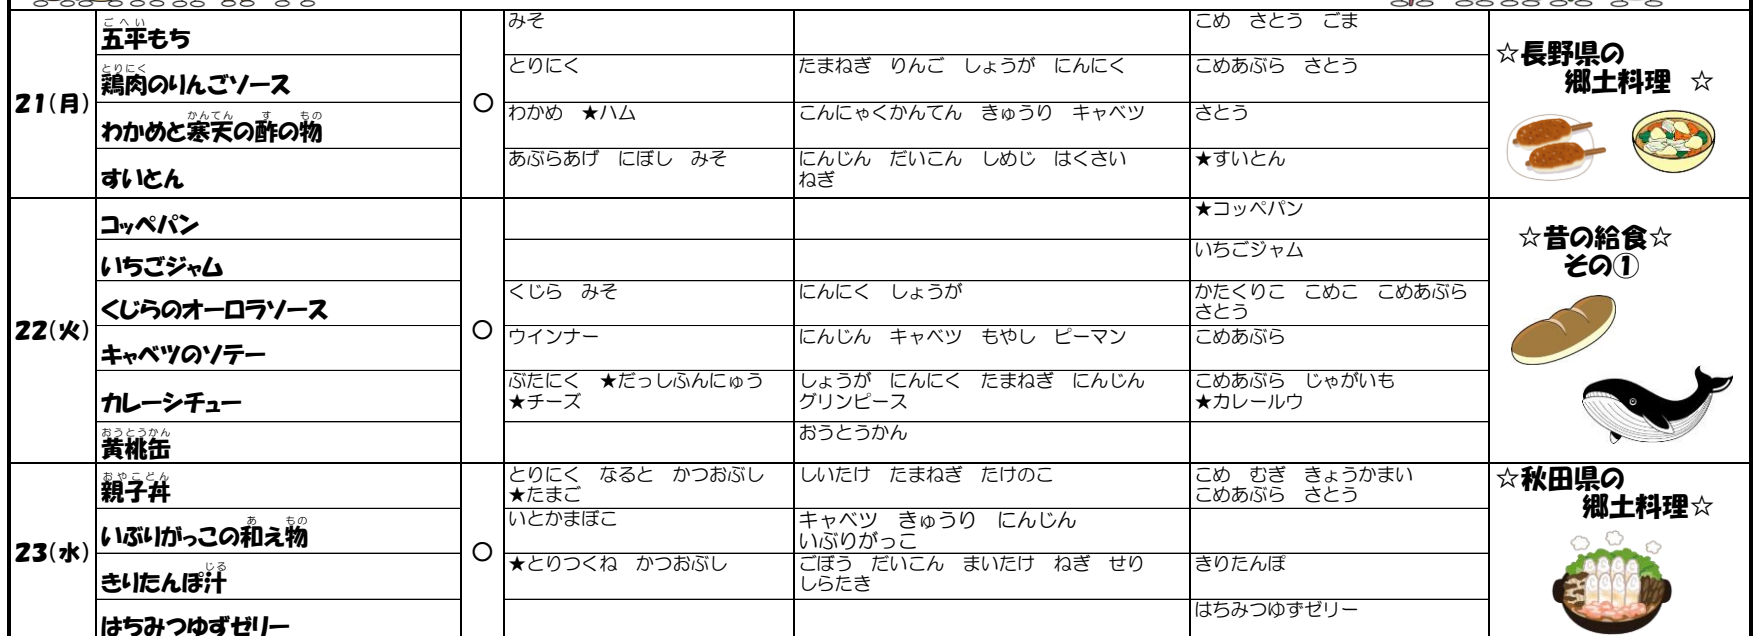 21(月)
ごへい
五平もち
みそ
こめ　さとう　ごま
とりにく
鶏肉のりんごソース
とりにく
たまねぎ　りんご　しょうが　にんにく
こめあぶら　さとう
かんてん　す　もの
わかめと寒天の酢の物
わかめ　★ハム
こんにゃくかんてん　きゅうり　キャベツ
さとう
すいとん
あぶらあげ　にぼし　みそ
にんじん　だいこん　しめじ　はくさい
ねぎ
★すいとん
○
☆長野県の
郷土料理　☆
22(火)
コッペパン
★コッペパン
いちごジャム
いちごジャム
くじらのオーロラソース
くじら　みそ
にんにく　しょうが
かたくりこ　こめこ　こめあぶら
さとう
キャベツのソテー
ウインナー
にんじん　キャベツ　もやし　ピーマン
こめあぶら
カレーシチュー
ぶたにく　★だっしふんにゅう
★チーズ
しょうが　にんにく　たまねぎ　にんじん
グリンピース
こめあぶら　じゃがいも
★カレールウ
おうとうかん
黄桃缶
おうとうかん
○
☆昔の給食☆
その①
23(水)
おやこどん
親子丼
とりにく　なると　かつおぶし
★たまご
しいたけ　たまねぎ　たけのこ
こめ　むぎ　きょうかまい
こめあぶら　さとう
あ　もの
いぶりがっこの和え物
いとかまぼこ
キャベツ　きゅうり　にんじん
いぶりがっこ
じる
きりたんぽ汁
★とりつくね　かつおぶし
ごぼう　だいこん　まいたけ　ねぎ　せり
しらたき
きりたんぽ
はちみつゆずゼリー
はちみつゆずゼリー
○
☆秋田県の
郷土料理☆